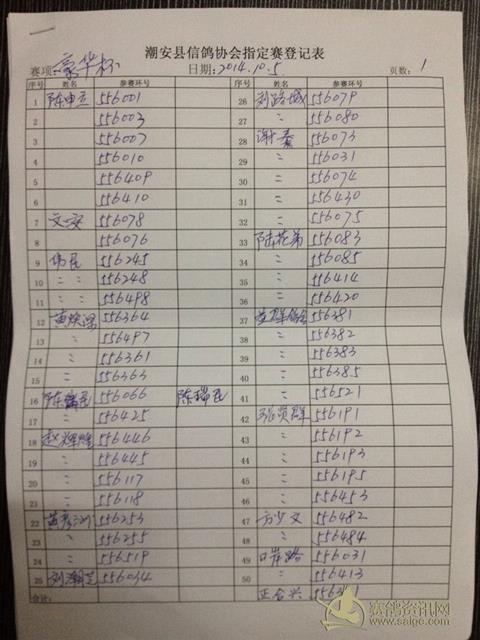 潮安县信鸽协会指定赛登记表
赛项: 豪华杯 日期: 2014.10.5 页数: 1
序号 姓名 参赛环号 序号 姓名 参赛环号
1 陈申立 556001 26 刘路城 556079
2 556003 27 〃 556080
3 556007 28 556073
4 556010 29 〃 556031
5 556409 30 〃 556074
6 556410 31 〃 556430
7 文安 556078 32 〃 556075
8 556076 33 556083
9 伟民 556245 34 〃 556085
10 〃 〃 556248 35 〃 556414
11 〃 〃 556498 36 〃 556420
12 556364 37 556381
13 〃 556497 38 〃 556382
14 〃 556361 39 〃 556383
15 〃 556363 40 〃 556385
16 556066 陈瑞民 41 〃 556521
17 〃 556425 42 张贤群 556191
18 赵辉煌 556446 43 〃 556192
19 〃 556445 44 〃 556193
20 〃 556117 45 〃 556195
21 〃 556118 46 〃 556453
22 556253 47 方少文 556482
23 〃 556255 48 〃 556484
24 〃 556519 49 556031
25 刘潮芝 556034 50 〃 556413
合计:
赛鸽资讯网
www.saige.com